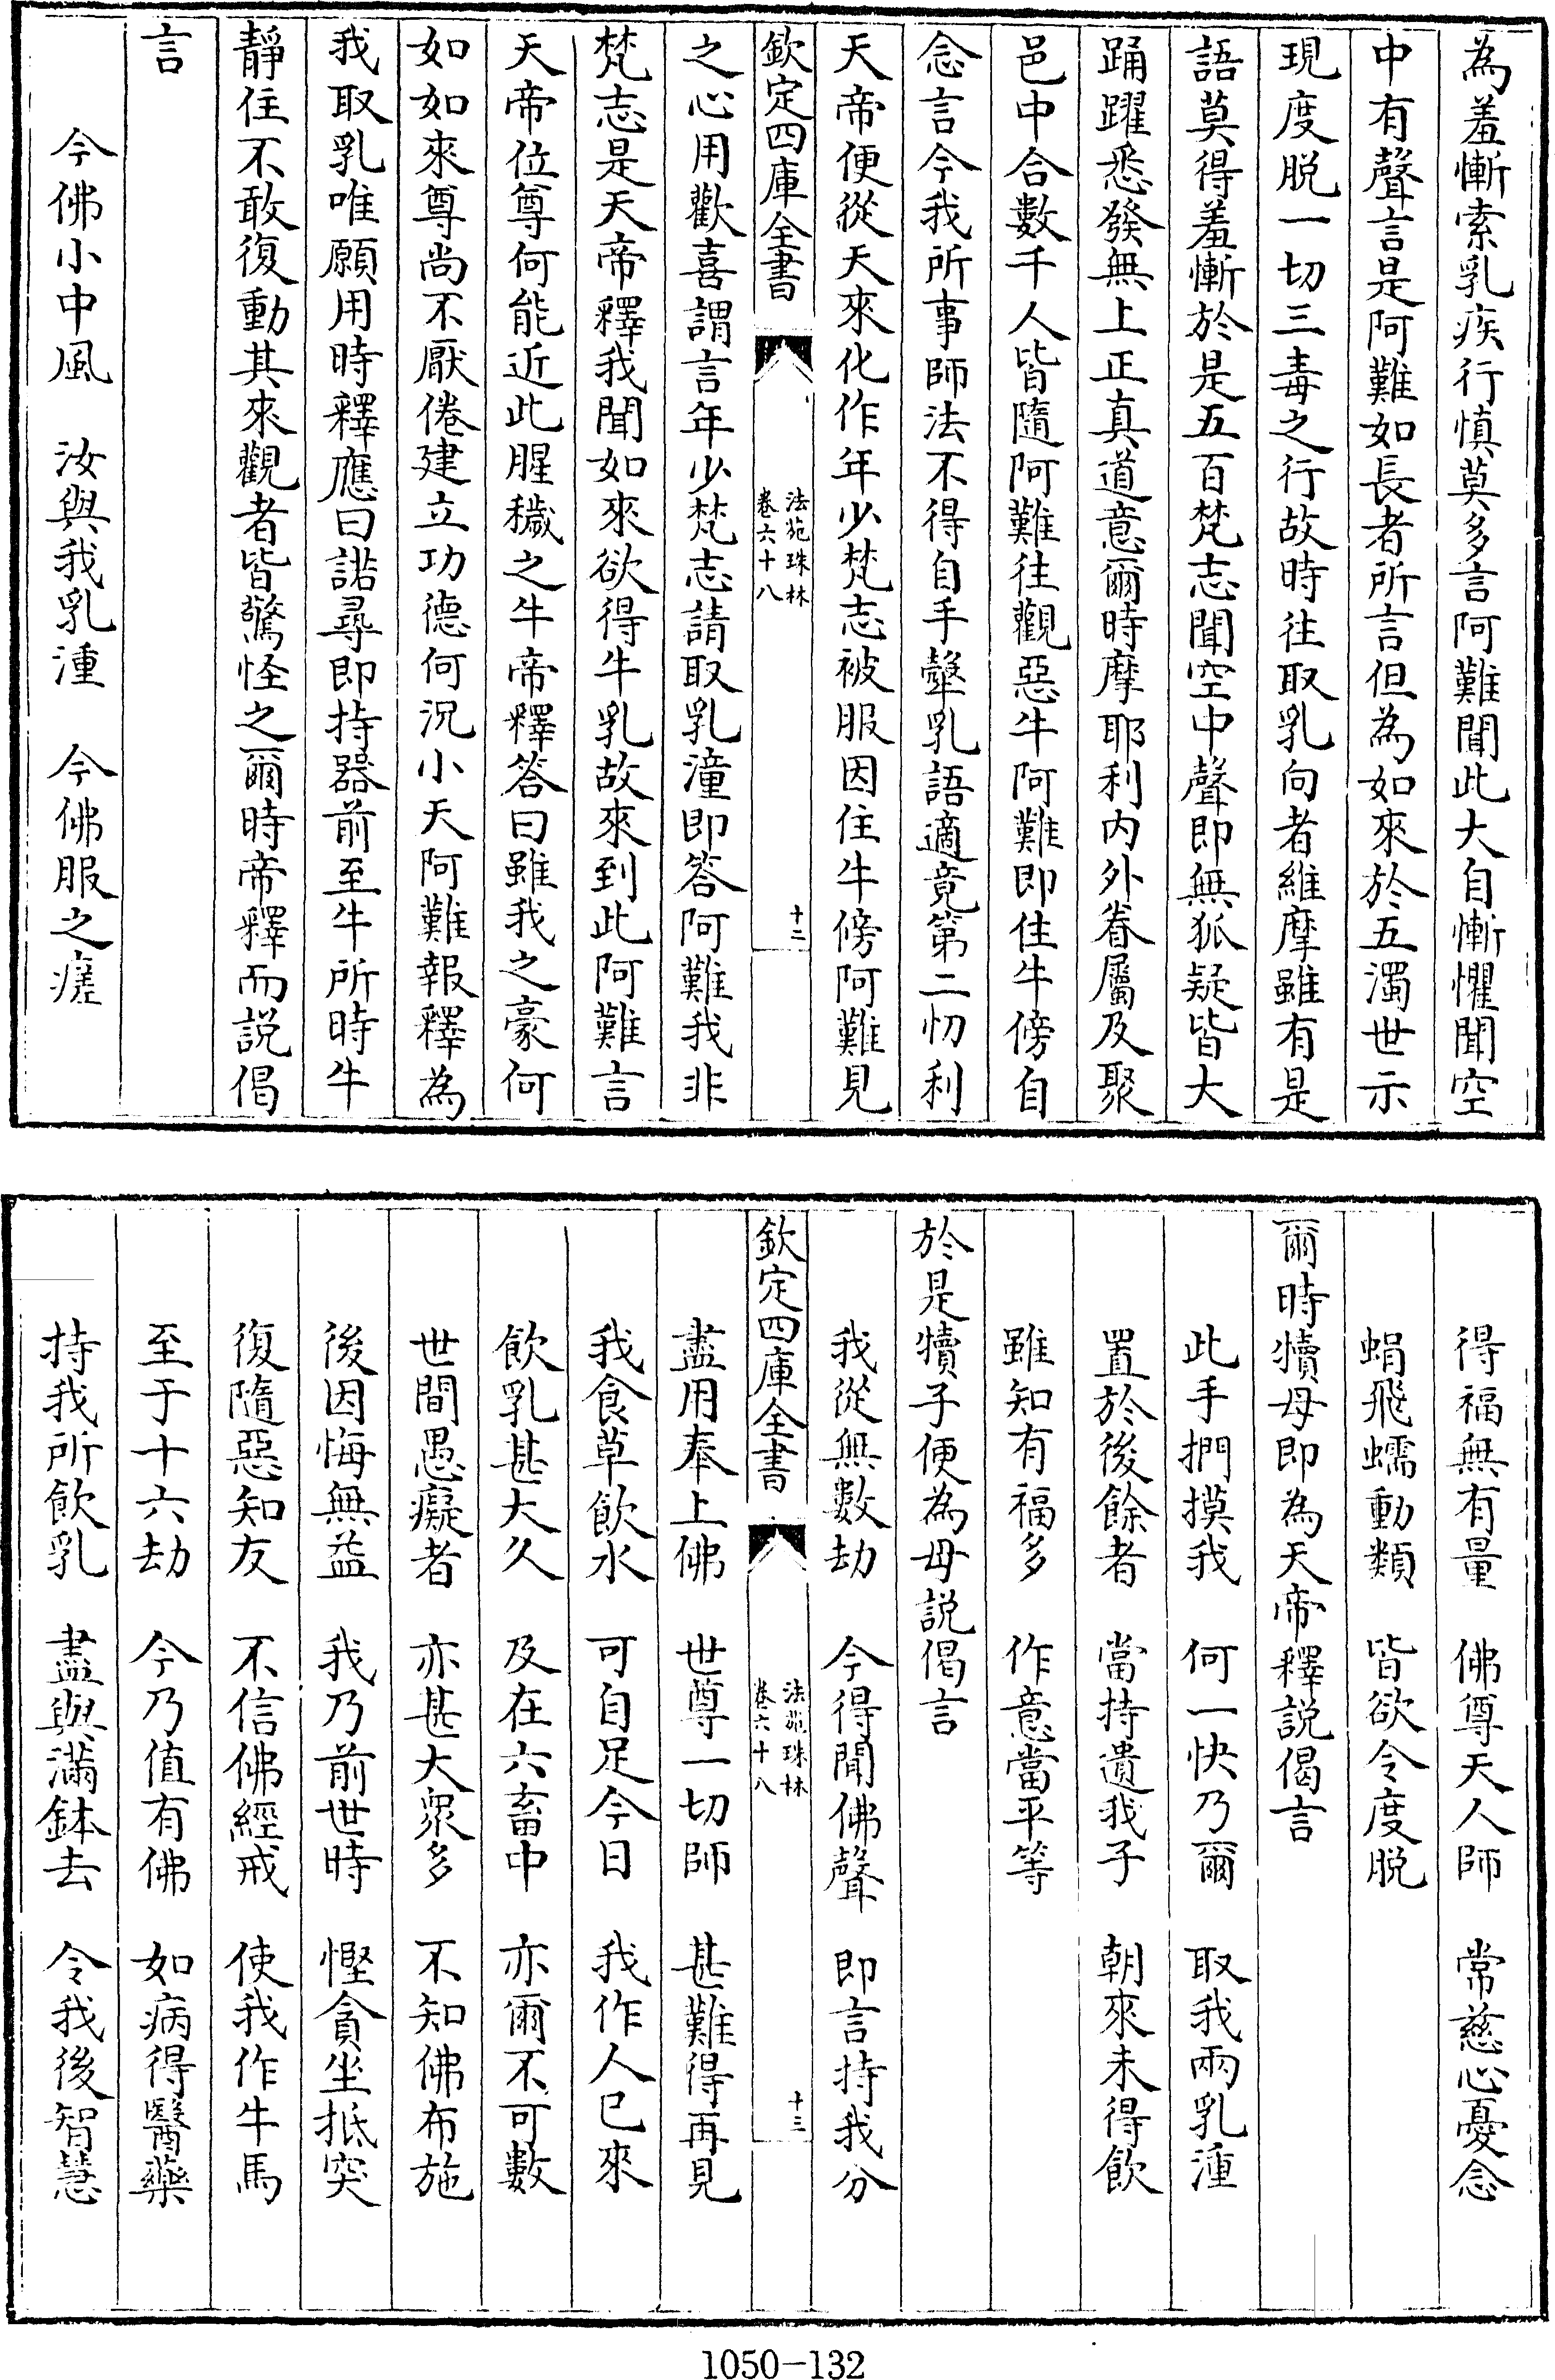 為羞慚索乳疾行慎莫多言阿難聞此大自慚懼聞空
中有聲言是阿難如長者所言但為如來於五濁世示
現度脱一切三毒之行故時往取乳向者維摩雖有是
語莫得羞慚於是五百梵志聞空中聲即無狐疑皆大
踊躍悉發無上正真道意爾時摩耶利内外眷屬及聚
邑中合數千人皆隨阿難往觀惡牛阿難即住牛傍自
念言今我所事師法不得自手犛乳語適竟第二忉利
天帝便從天來化作年少梵志被服因住牛傍阿難見
欽定四庫全書
法苑珠林
卷六十八
十二
之心用歡喜謂言年少梵志請取乳湩即答阿難我非
梵志是天帝釋我聞如來欲得牛乳故來到此阿難言
天帝位尊何能近此腥穢之牛帝釋答曰雖我之豪何
如如來尊尚不厭倦建立功德何況小天阿難報釋為
我取乳唯願用時釋應曰諾尋即持器前至牛所時牛
靜住不敢復動其來觀者皆驚怪之爾時帝釋而説偈
言
今佛小中風　汝與我乳湩　今佛服之瘥
得福無有量　佛尊天人師　常慈心憂念
蜎飛蠕動類　皆欲令度脱
爾時犢母即為天帝釋説偈言
此手捫摸我　何一快乃爾　取我兩乳湩
置於後餘者　當持遺我子　朝來未得飲
雖知有福多　作意當平等
於是犢子便為母説偈言
我從無數劫　今得聞佛聲　即言持我分
欽定四庫全書
法苑珠林
卷六十八
十三
盡用奉上佛　世尊一切師　甚難得再見
我食草飲水　可自足今日　我作人已來
飲乳甚大久　及在六畜中　亦爾不可數
世間愚癡者　亦甚大衆多　不知佛布施
後因悔無益　我乃前世時　慳貪坐抵突
復隨惡知友　不信佛經戒　使我作牛馬
至于十六劫　今乃值有佛　如病得醫藥
持我所飲乳　盡與滿鉢去　令我後智慧
1050-132